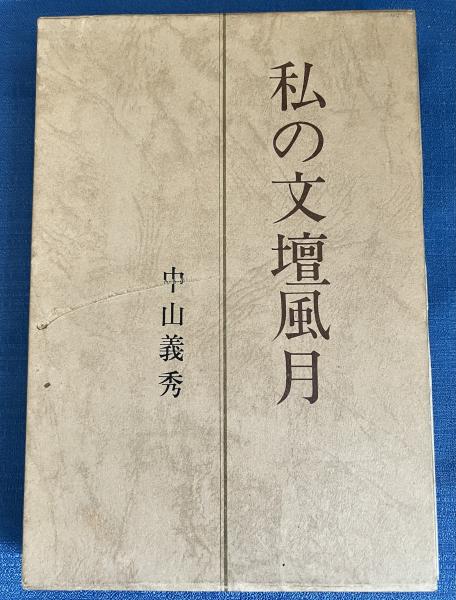 私の文壇風月
中山義秀